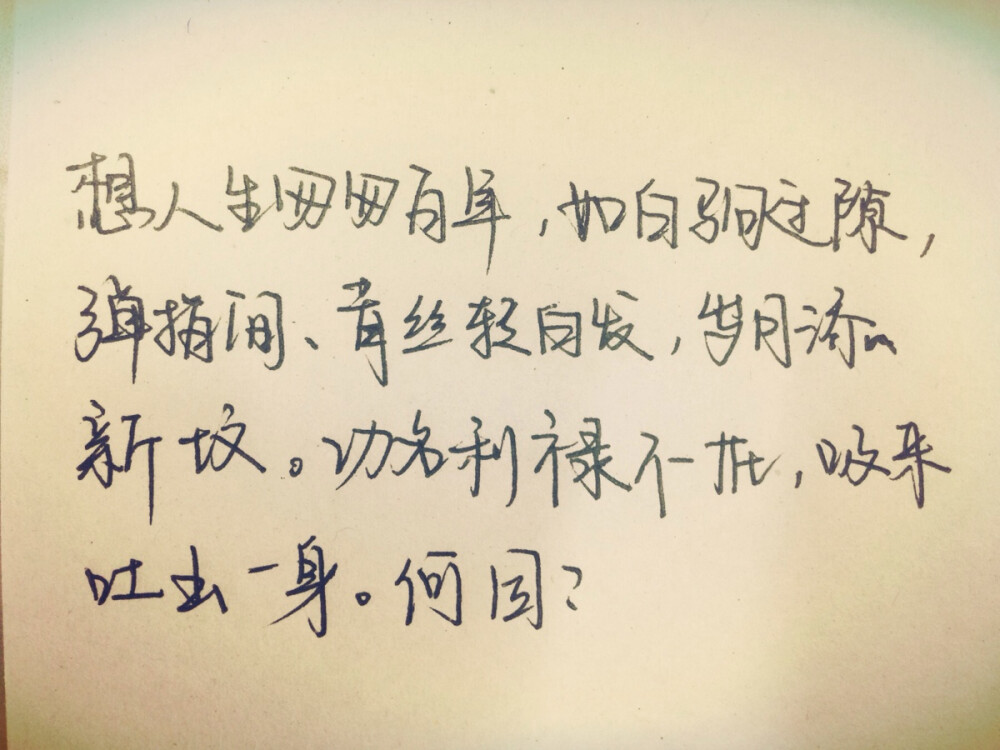 想人生匆匆百年，如白驹过隙，
弹指间、青丝转白发，岁月添
新坟。功名利禄不一在，吸来
吐出一身。何因？